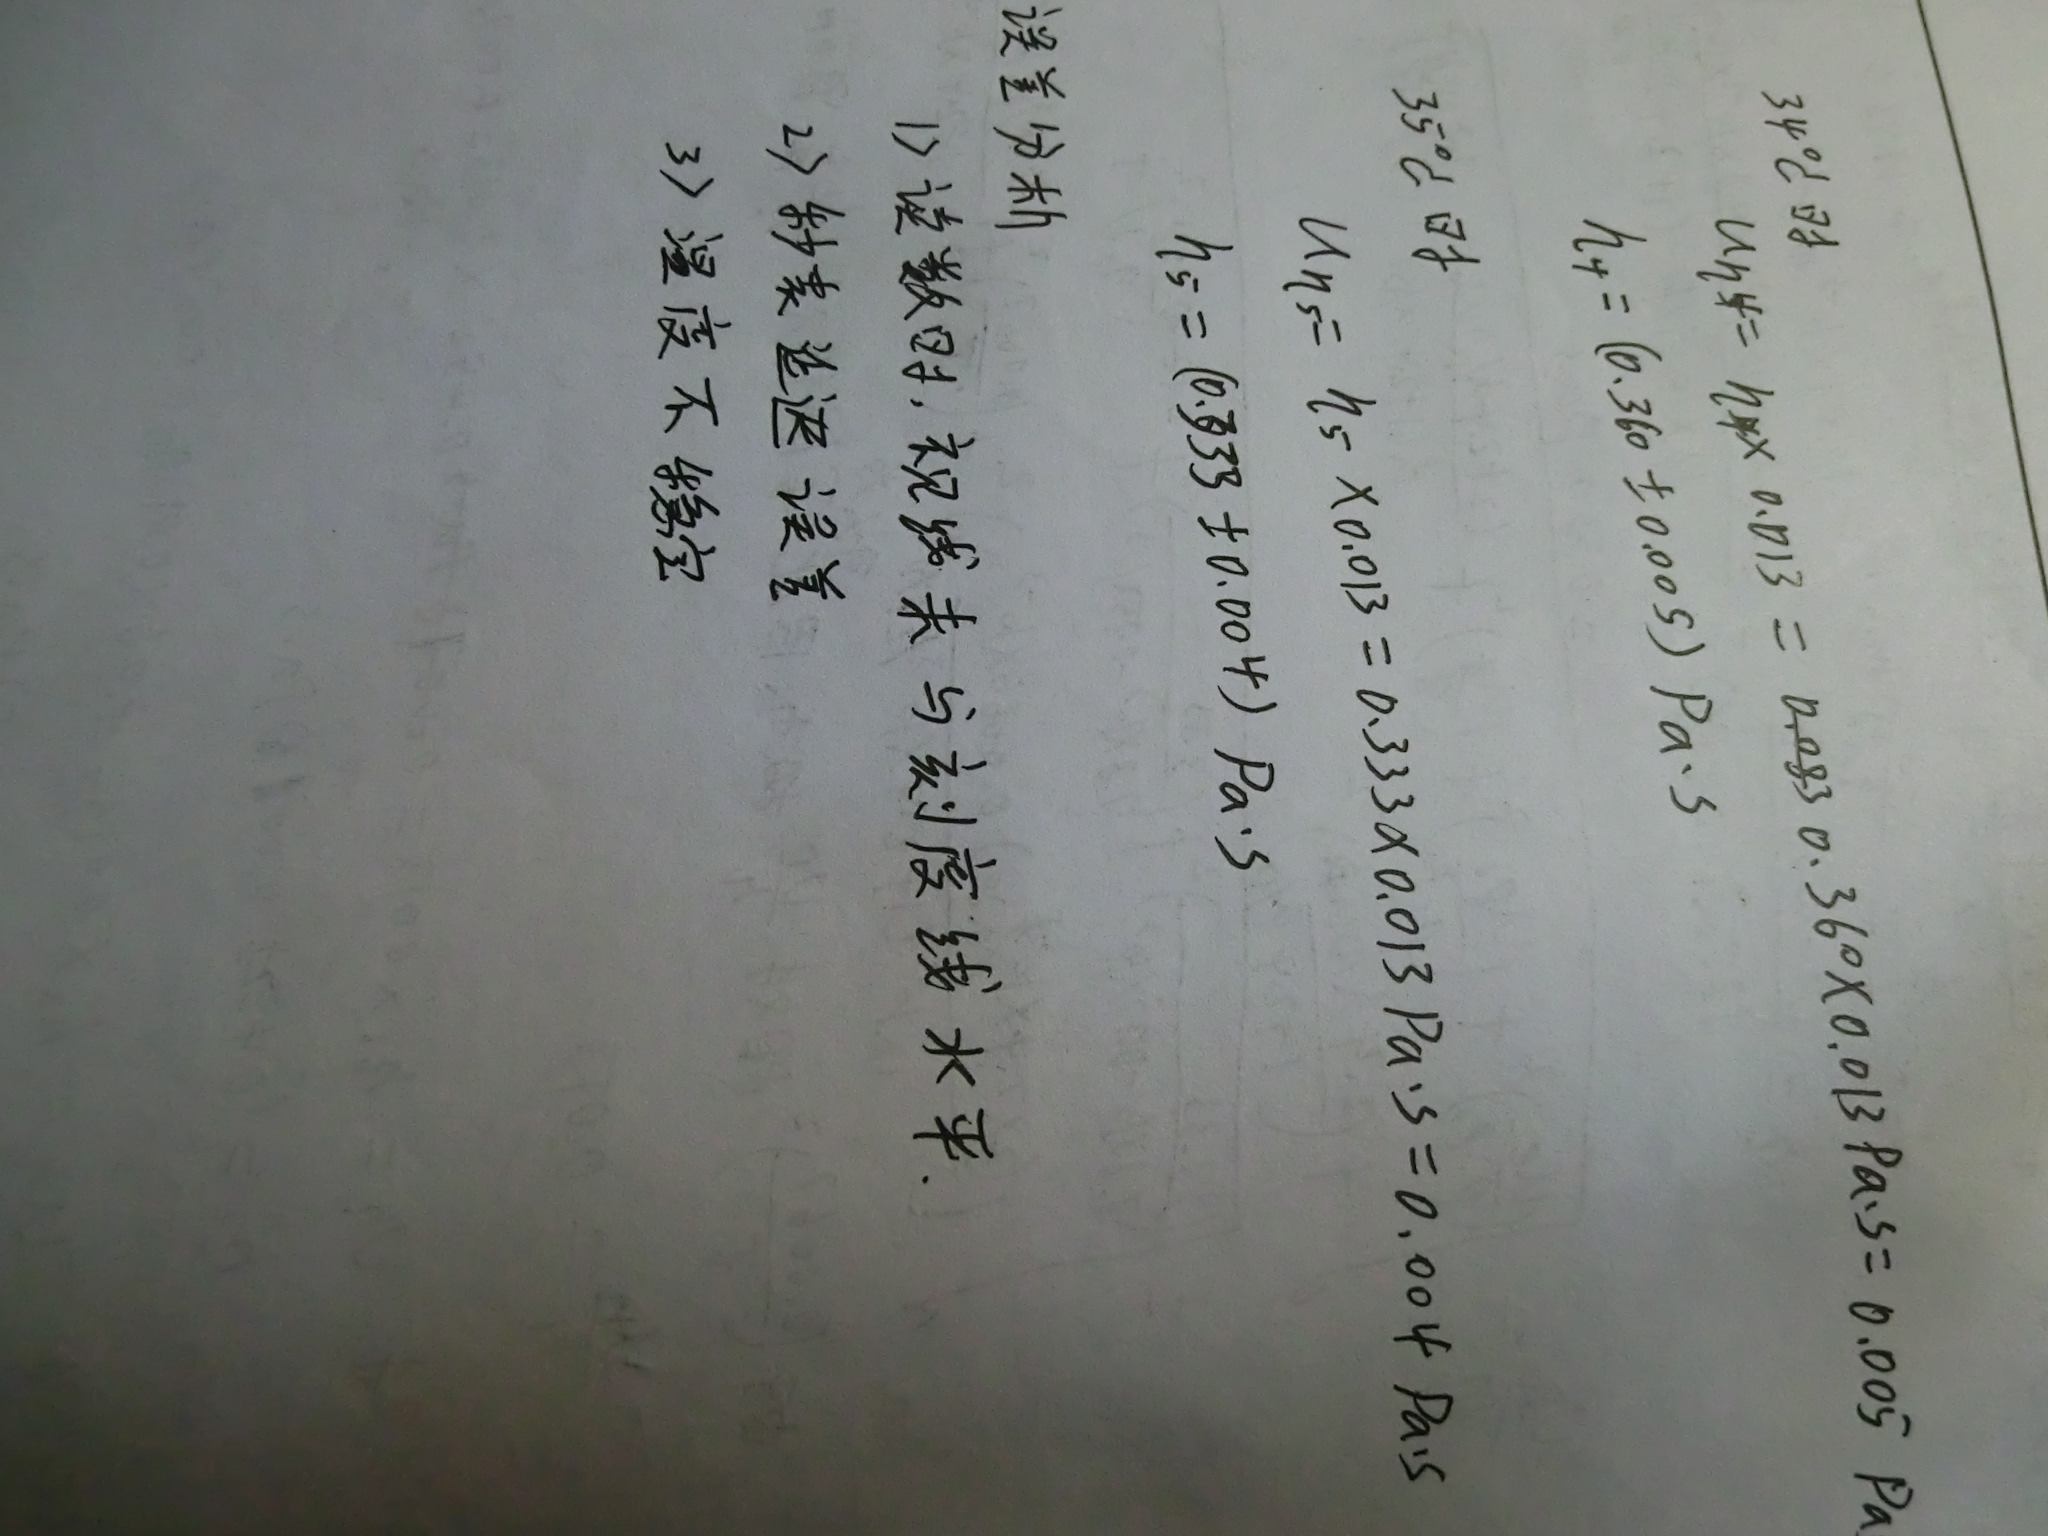 34℃时
Uη4 = η4 × 0.013 = 0.360×0.013Pa·s = 0.005 Pa
η4 = (0.360 ± 0.005) Pa·s
35℃时
Uη5 = η5 ×0.013 = 0.333×0.013Pa·s = 0.004 Pa·s
η5 = (0.333 ±0.004) Pa·s
误差分析
1) 读数时,视线未与刻度线水平.
2) 秒表 误差
3) 温度不稳定